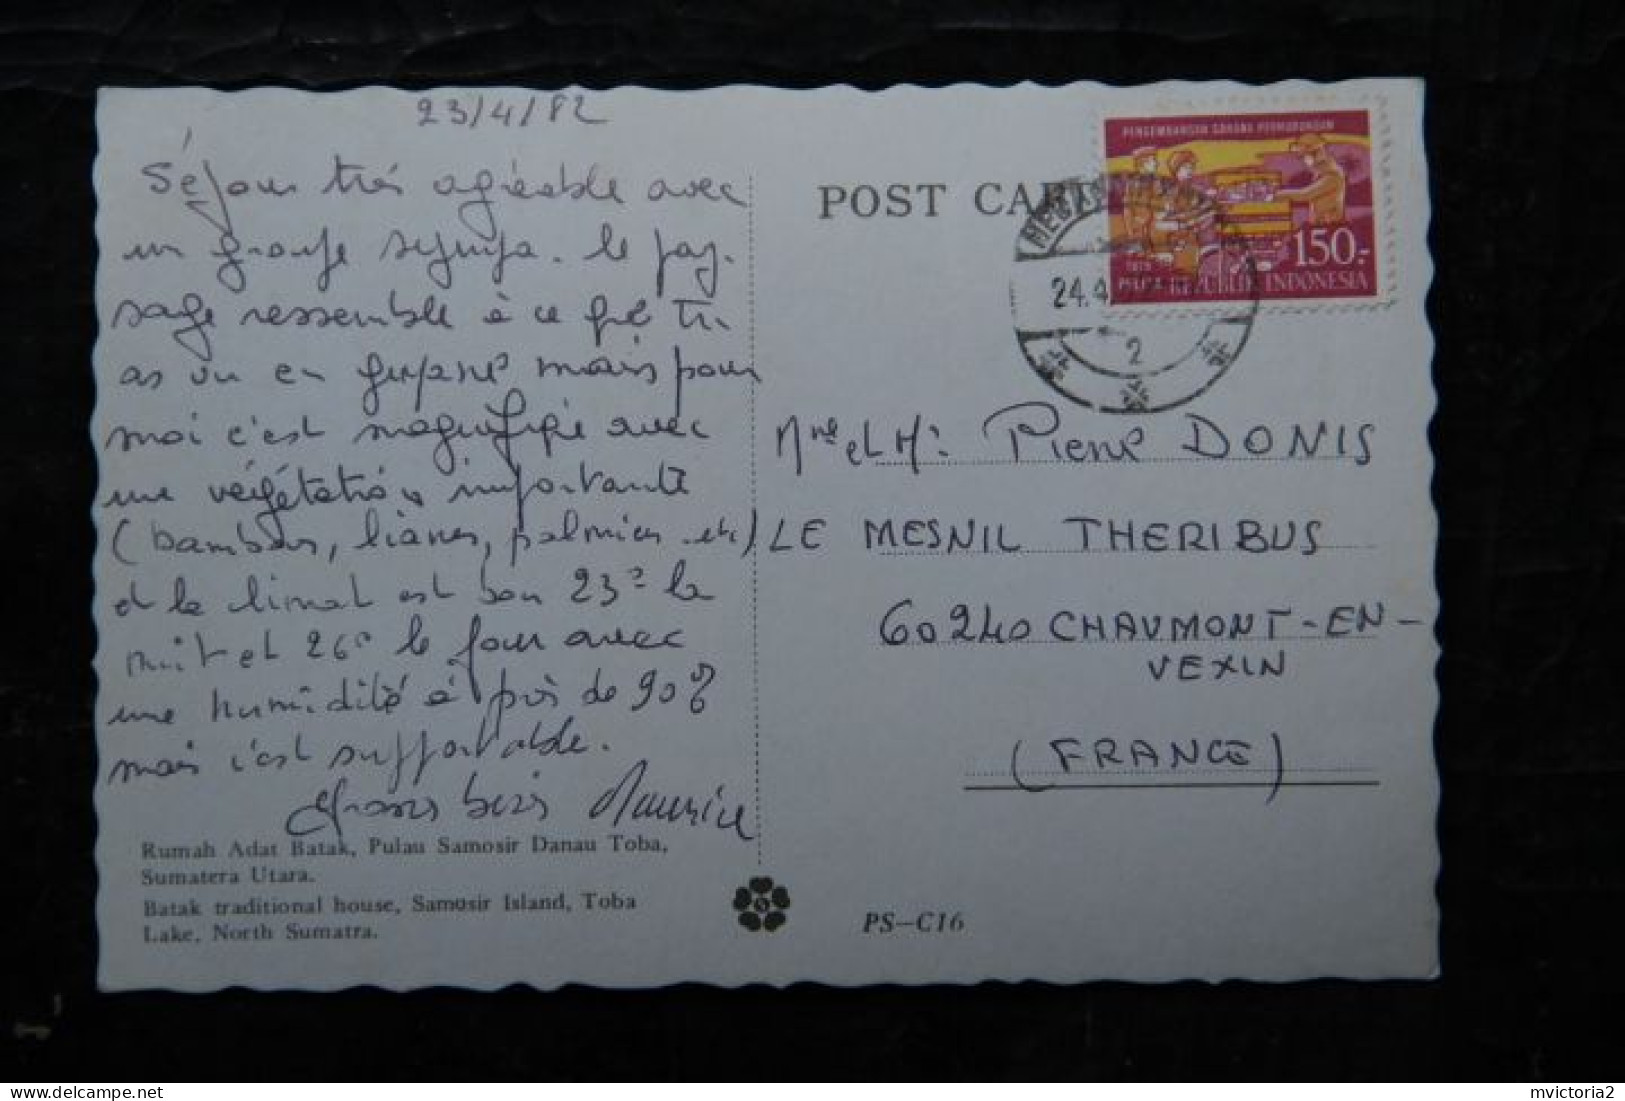 23/4/82
Séjour très agréable avec
un groupe sympa. le pay-
sage ressemble à ce que tu
as vu en guyane mais pour
moi c'est magnifique avec
une végétation importante
(bambous, lianes, palmiers.etc)
et le climat est bon 23° la
nuit et 26° le jour avec
une humidité à près de 90%
mais c'est supportable.
Grosses bises Maurice
Rumah Adat Batak, Pulau Samosir Danau Toba,
Sumatera Utara.
Batak traditional house, Samosir Island, Toba
Lake, North Sumatra.
POST CARD
PENGEMBANGAN SARANA
150.-
1979
PELITA REPUBLIK INDONESIA
24.4
2
Mme et M: Pierre DONIS
LE MESNIL THERIBUS
60240 CHAUMONT-EN-
VEXIN
(FRANCE)
PS-C16
mvictoria2